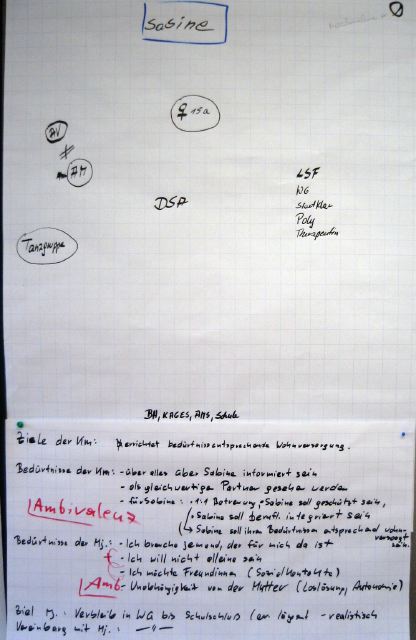 Sabine
♀ 15a
AV
AM
LSF
WG
DSA
Poly
Therapeutin
Tanzgruppe
BH, KAGES, AMS, Schule
Ziele der Km: errichtet bedürfnissentsprechende Wohnversorgung.
Bedürfnisse der Km: - über alles über Sabine informiert sein
- als gleichwertige Partner gesehen werden
- für Sabine: 1:1 Betreuung, Sabine soll geschützt sein,
Sabine soll berufl. integriert sein
Ambivalenz
Sabine soll ihren Bedürfnissen entsprechend wohnversorgt sein.
Bedürfnisse der Mj.: - Ich brauche jemand, der für mich da ist
- Ich will nicht alleine sein
- Ich möchte Freundinnen (Sozialkontakte)
Amb. - Unabhängigkeit von der Mutter (Loslösung, Autonomie)
Ziel Mj.: Verbleib in WG bis Schulschluß - realistisch
mit Mj.: — " —